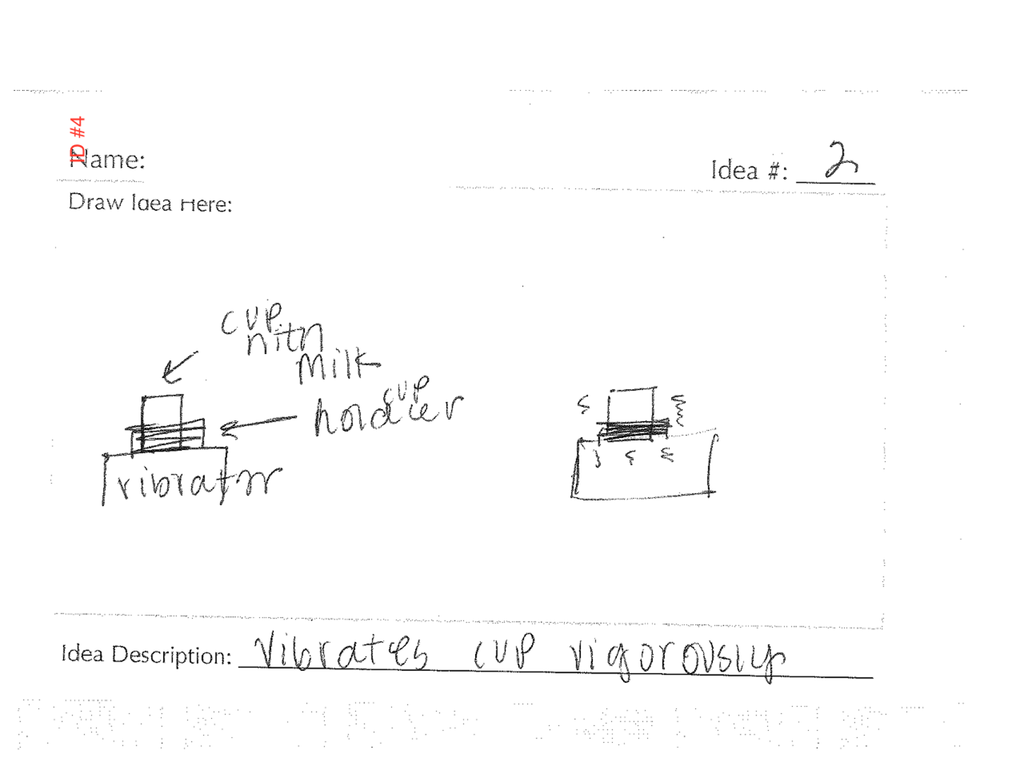 ID #4
Name:
Idea #: 2
Draw Idea Here:
cup
with
milk
cup
holder
vibrator
Idea Description: Vibrates cup vigorously